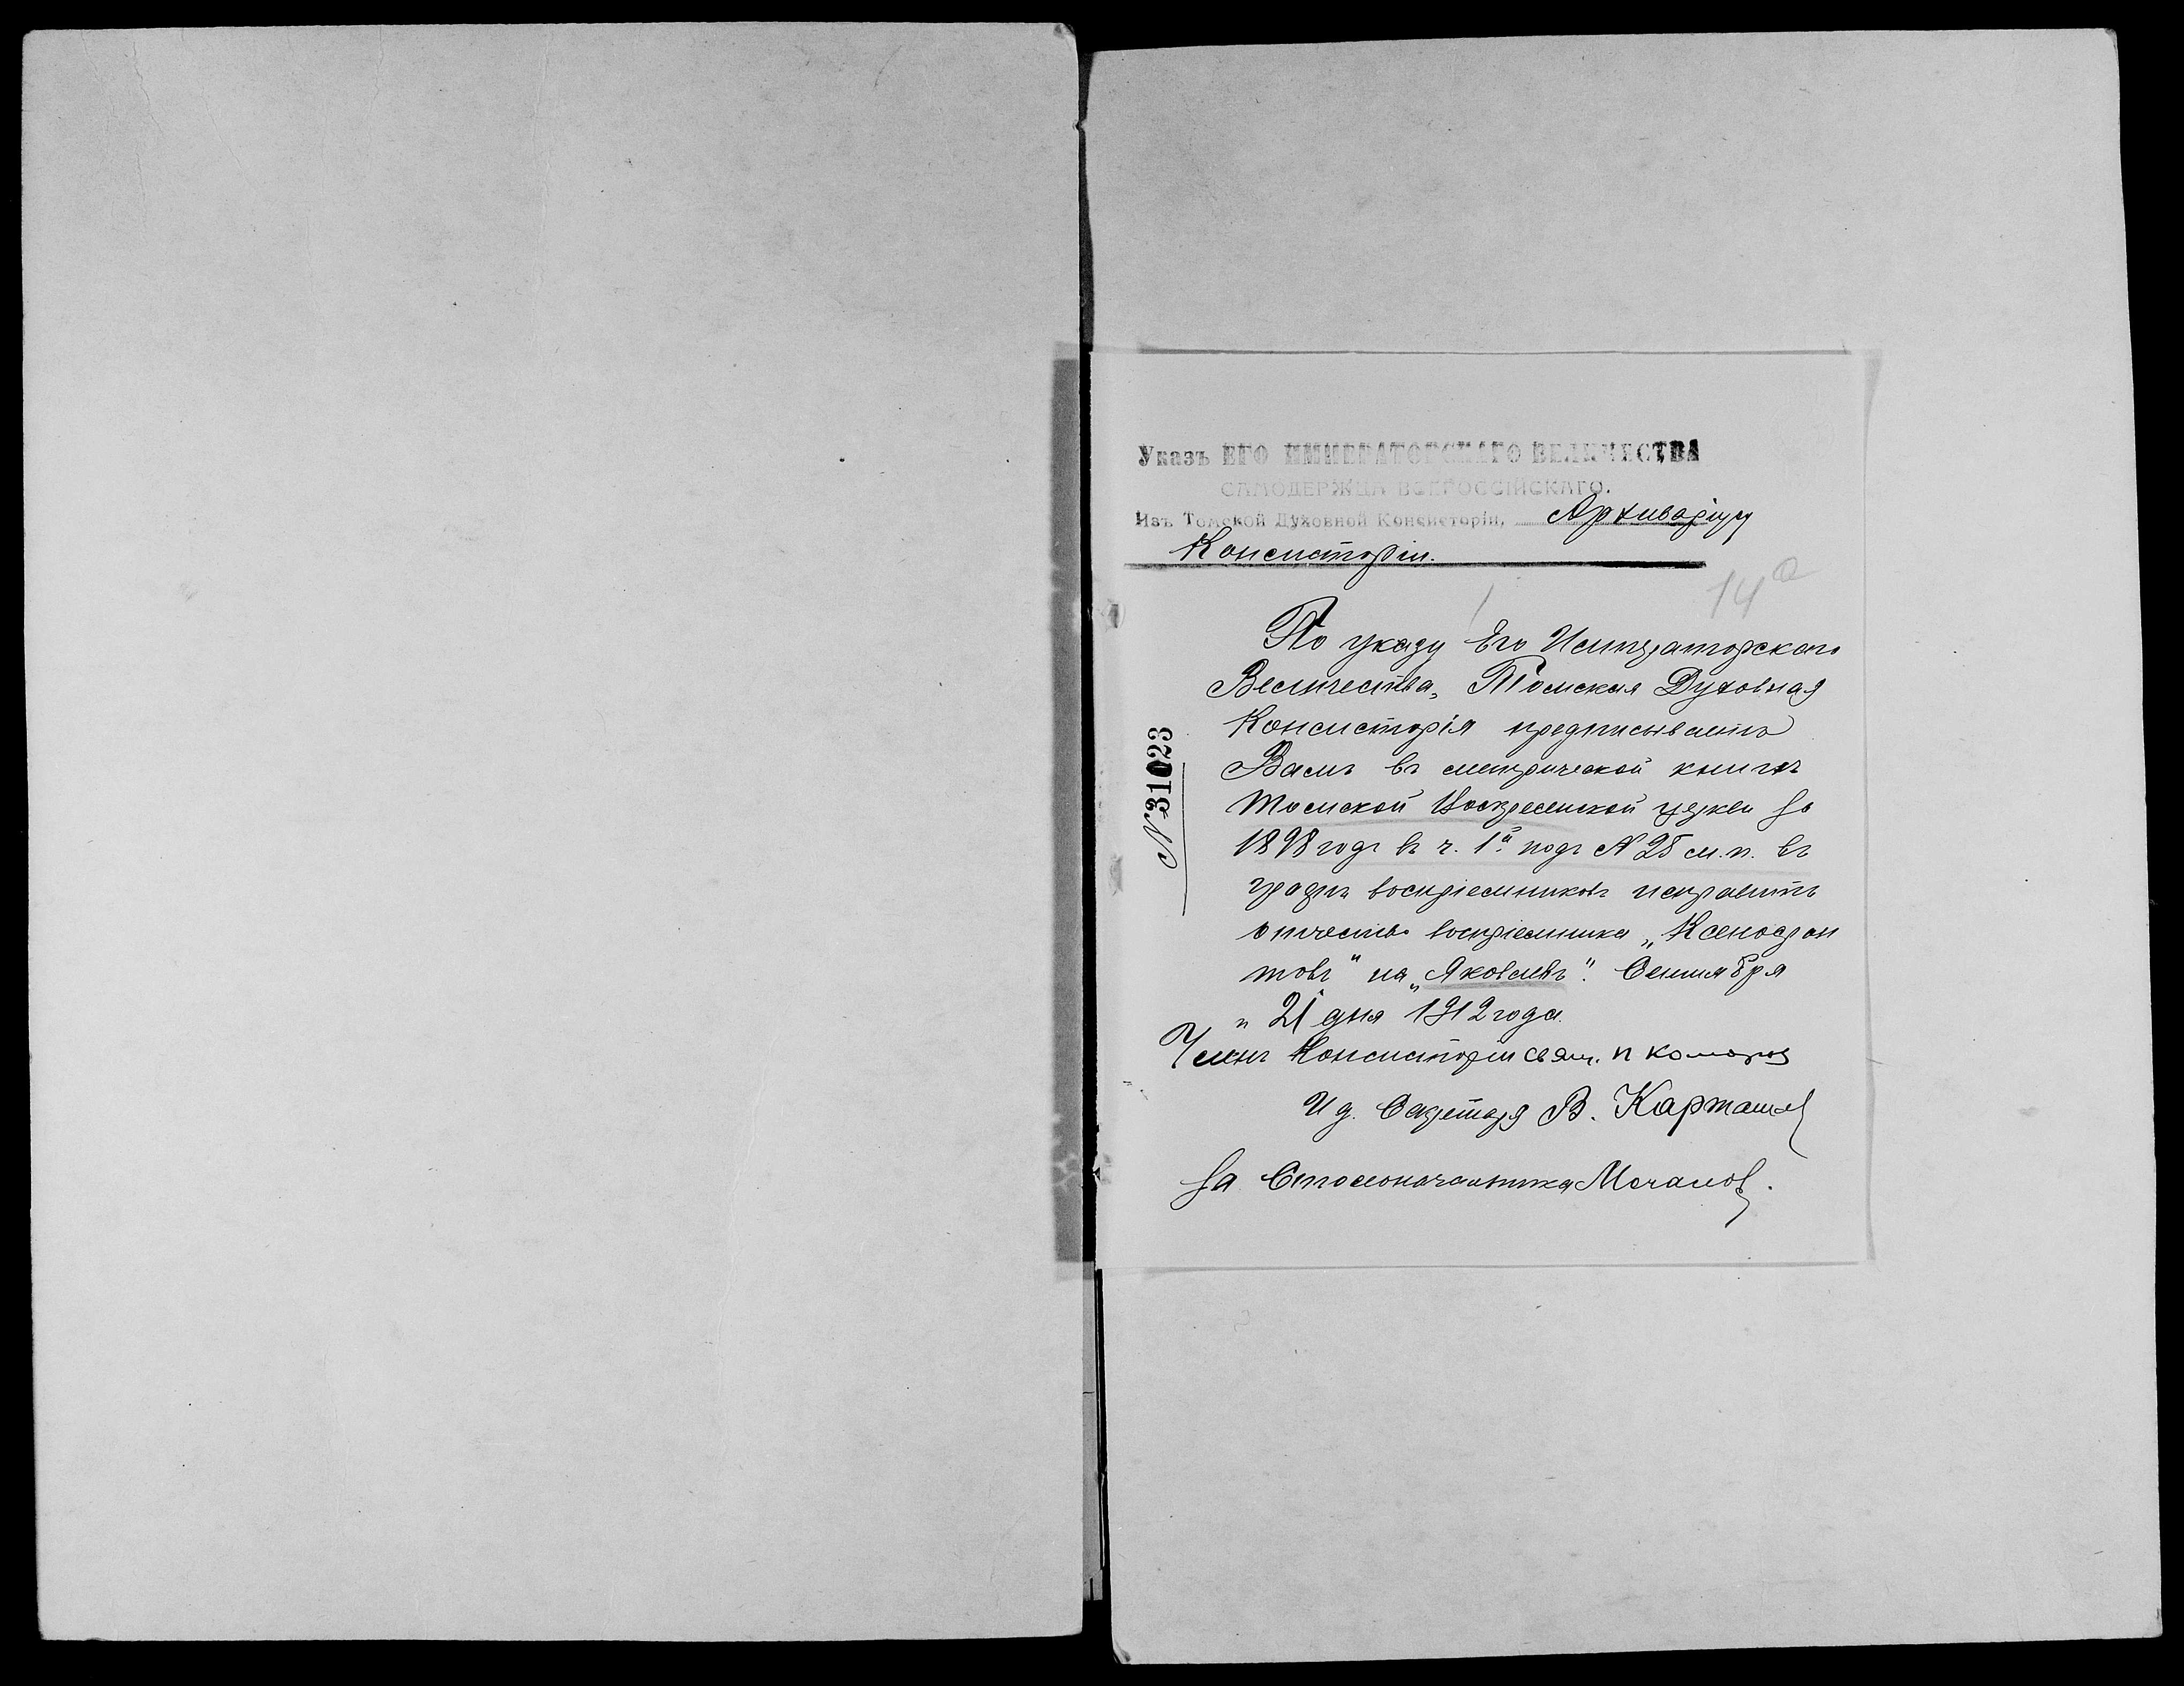 Указъ ЕГО ИМПЕРАТОРСКАГО ВЕЛИЧЕСТВА
САМОДЕРЖЦА ВСЕРОССІЙСКАГО.
Изъ Томской Духовной Консисторіи, Архиваріусу
Консисторіи.
14а
По указу Его Императорскаго
Величества, Томская Духовная
Консисторія предписываетъ
Вамъ въ метрической книгѣ
Томской Воскресенской церкви за
1898 годъ въ ч. 1й подъ № 25 м.п. въ
графѣ воспріемниковъ исправить
отчество воспріемника „Ксенофон
товъ" на „Яковлевъ". Сентября
„ 21 дня 1912 года.
Членъ Консисторіи свящ. П Комаровъ
И д. Секретаря В. Карташевъ
За Столоначальника Мочаловъ.
№ 31023